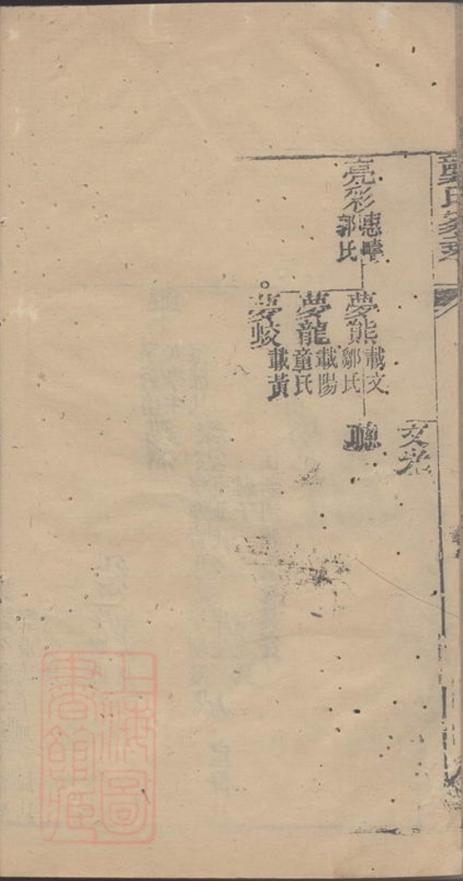 氏家
文光
亮彩 郭氏
夢熊 載文 鄒氏
聰
夢龍 載陽 童氏
夢蛟 載黃
上海圖
書館藏